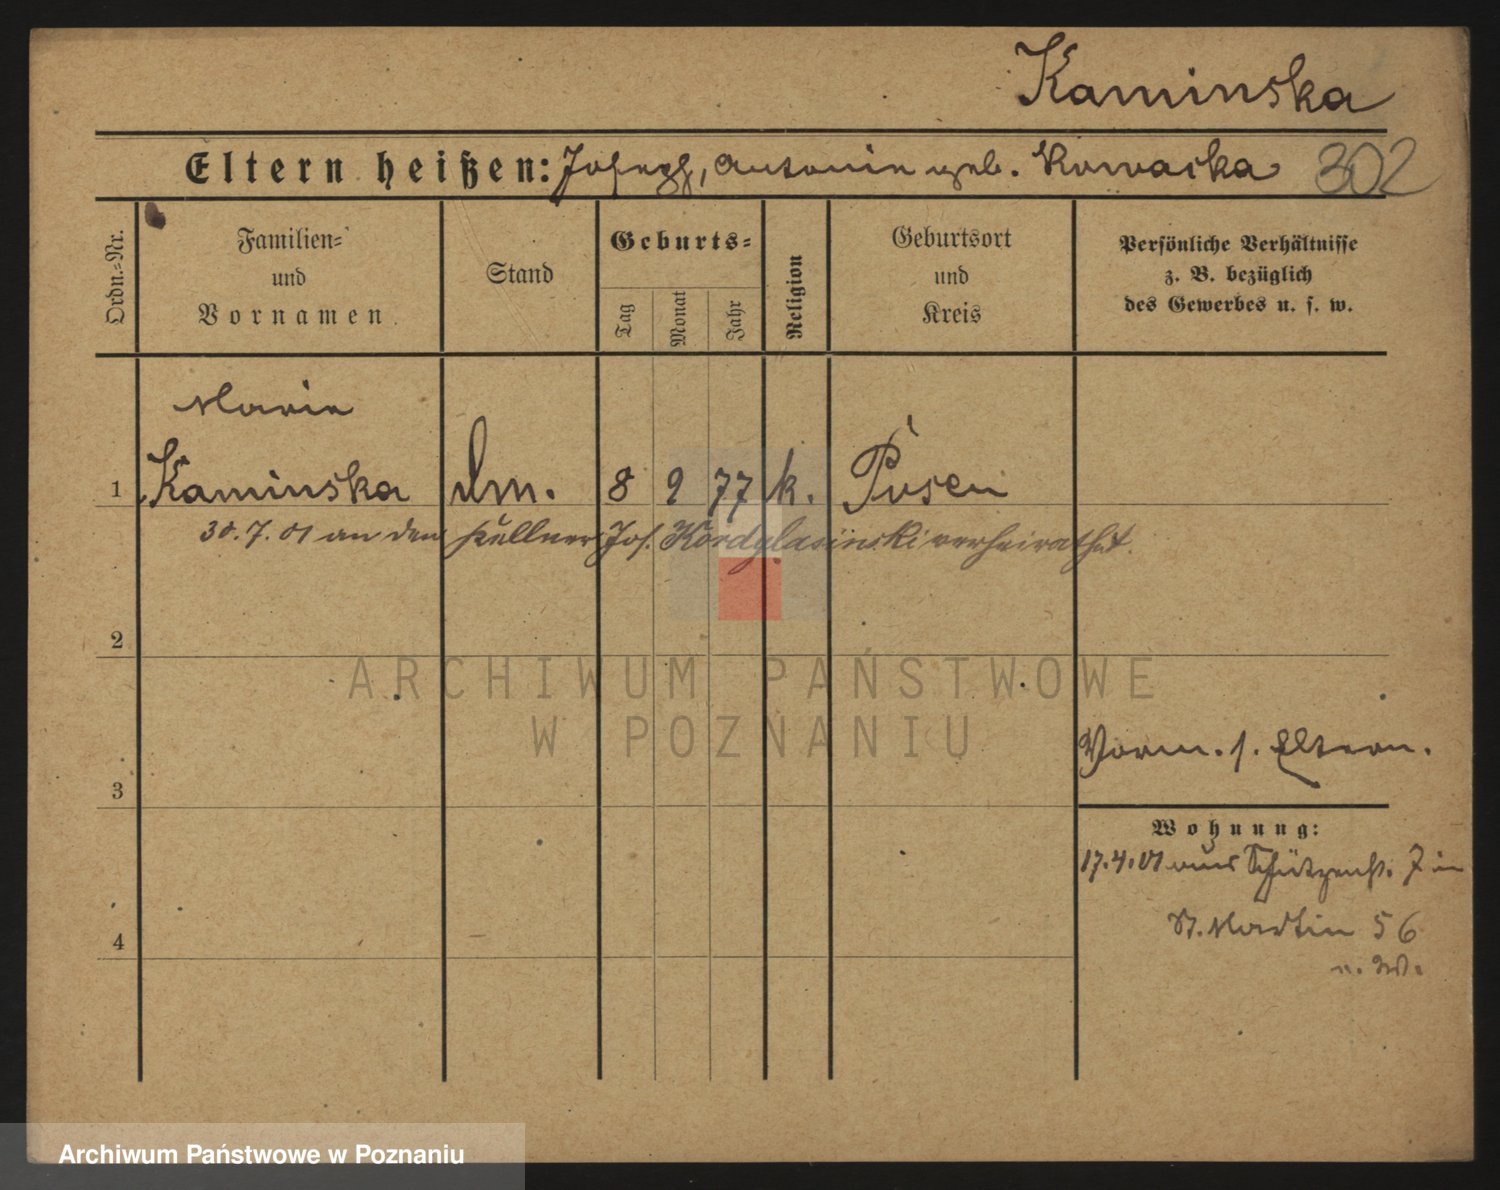 Kaminska
Eltern heißen: Joseph, Antonie geb. Kowacka 302
Ordn.-Nr.
Familien-
und
Vornamen
Stand
Geburts-
Tag
Monat
Jahr
Religion
Geburtsort
und
Kreis
Persönliche Verhältnisse
z. B. bezüglich
des Gewerbes u. s. w.
Marie
1 Kaminska 8 9 77 k. Posen
30.7.01 an den Kellner Jos. verheirathet.
2
ARCHIWUM PAŃSTWOWE
W POZNANIU
Vorm. s. Eltern.
3
Wohnung:
17.4.01 aus Schützenst. 7 in
St. Martin 56
4
Archiwum Państwowe w Poznaniu